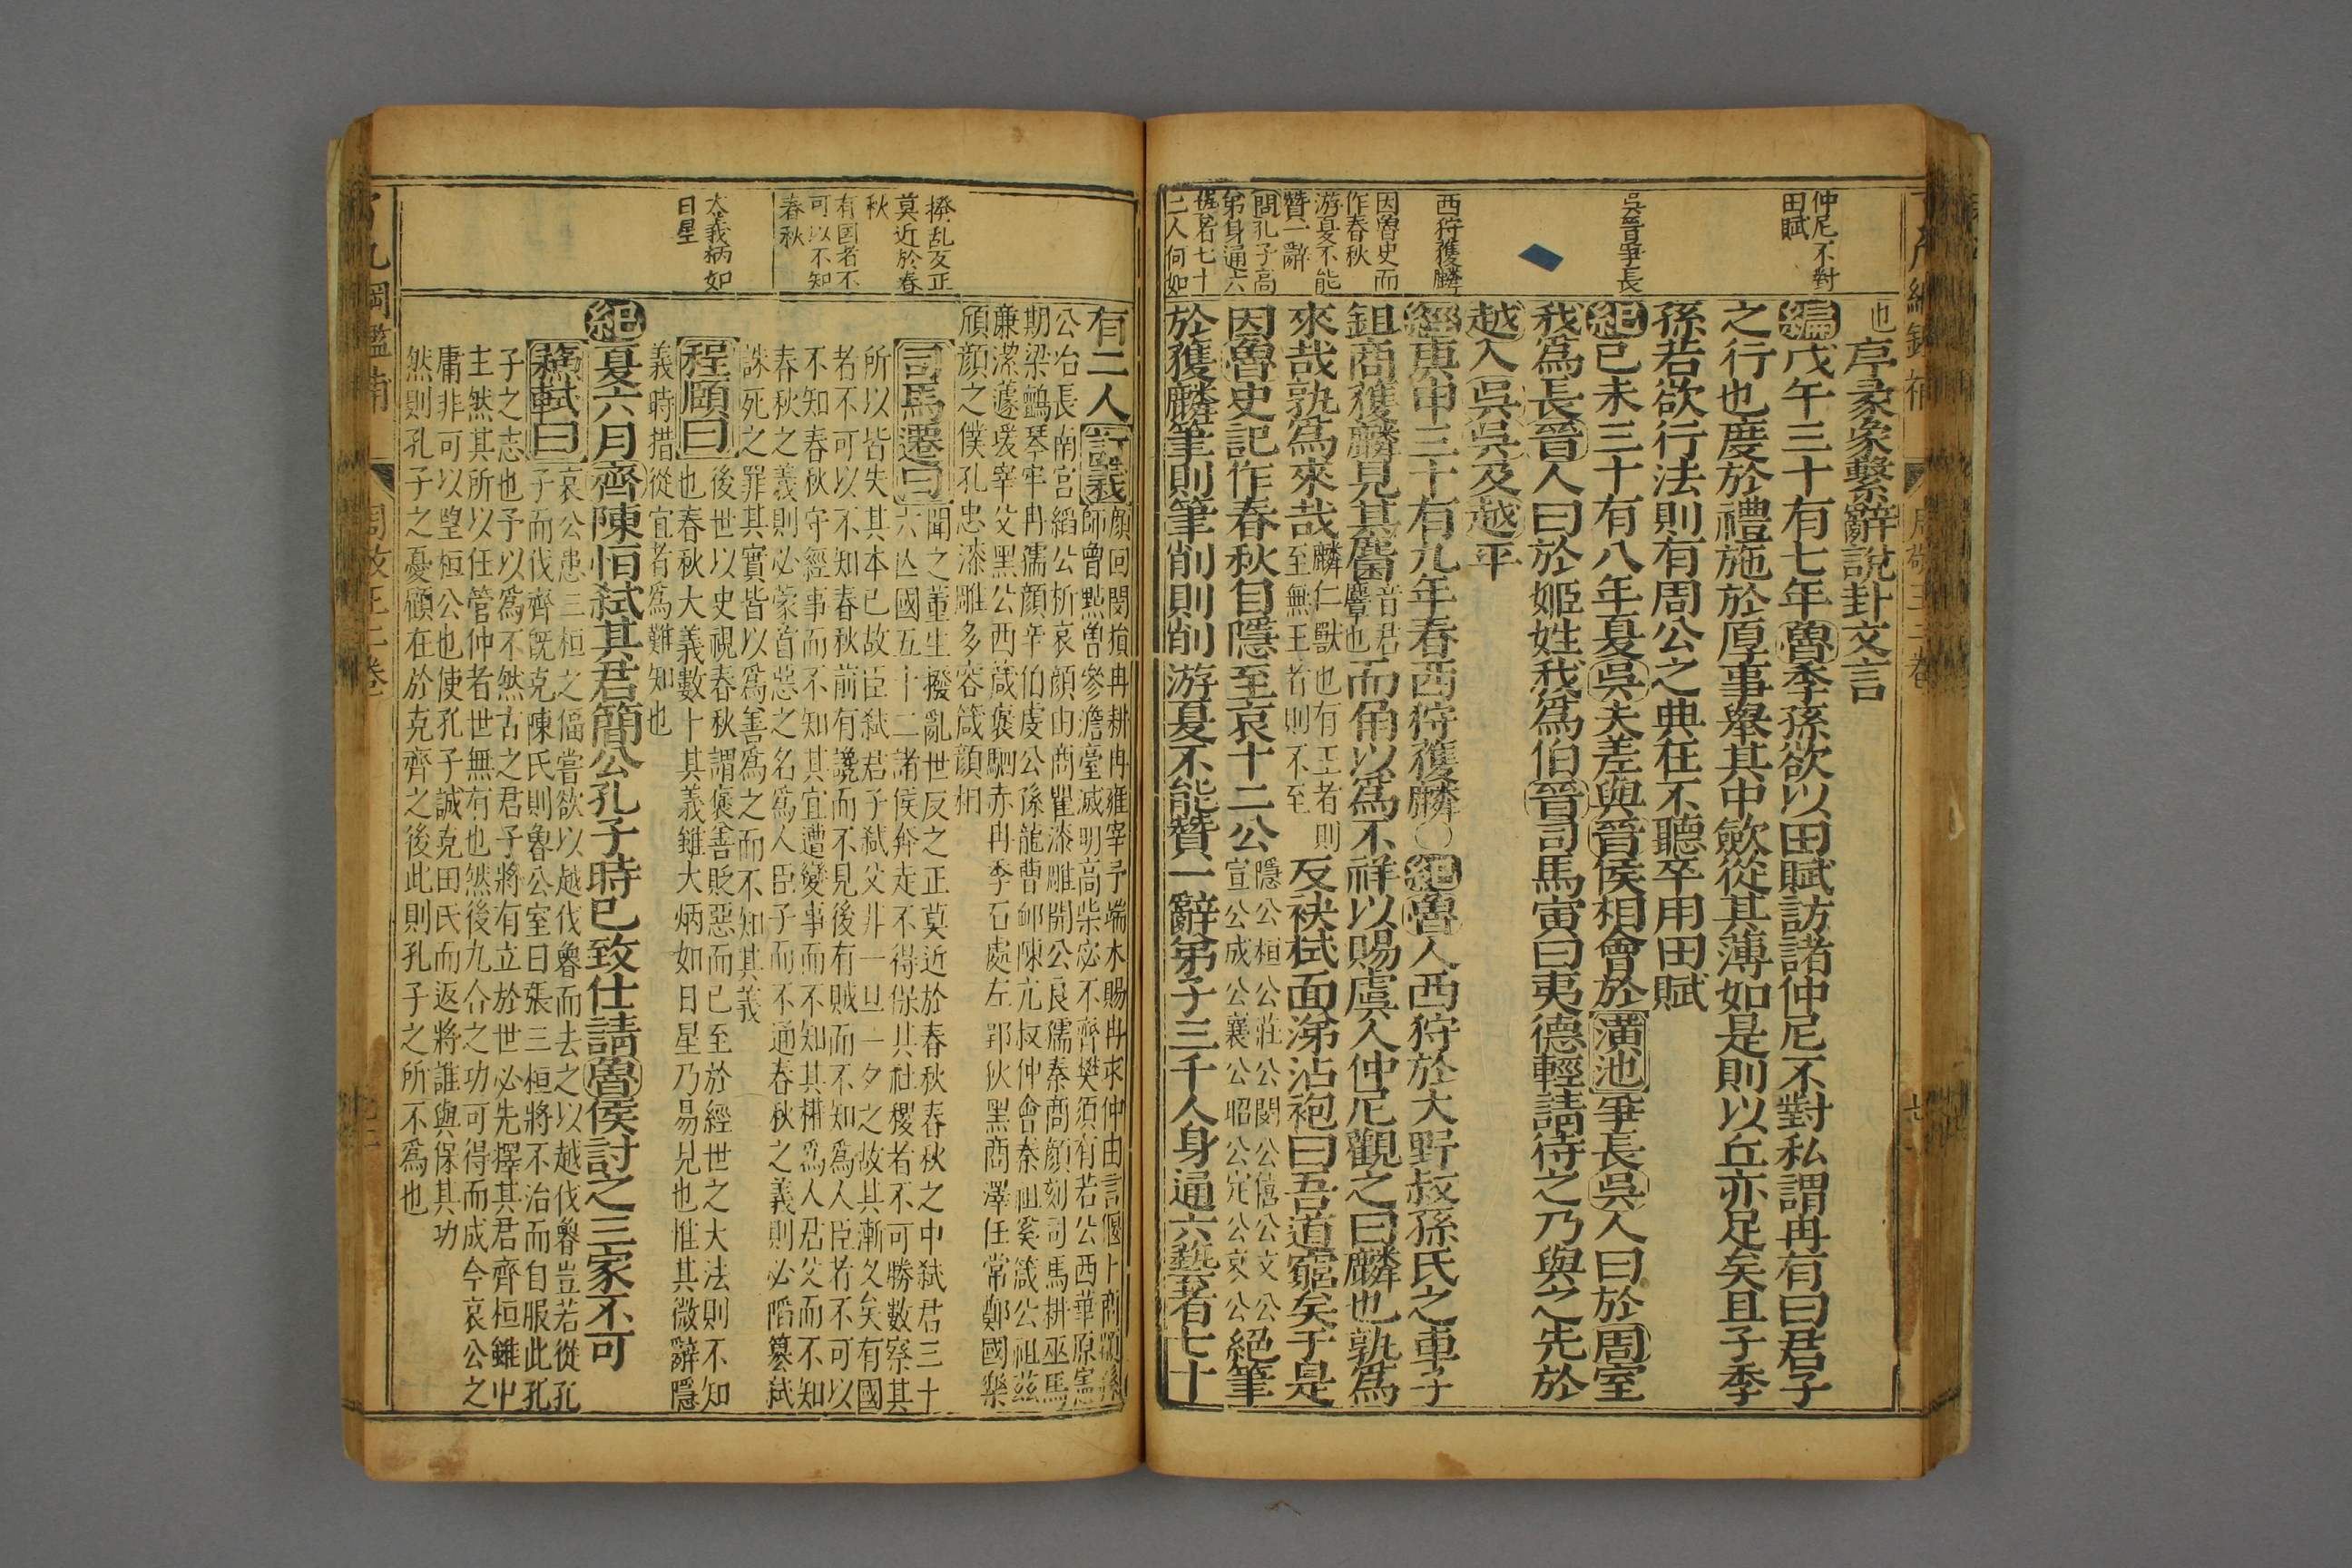 仲尼不對
田賦
吳晉爭長
西狩獲麟
因魯史而
作春秋
游夏不能
贊一辭
問孔子高
弟身通六
藝者七十
二人何如
也序彖象繫辭說卦文言
編戊午三十有七年魯季孫欲以田賦訪諸仲尼不對私謂冉有曰君子
之行也度於禮施於厚事舉其中斂從其薄如是則以丘亦足矣且子季
孫若欲行法則有周公之典在不聽卒用田賦
紀己未三十有八年夏吳夫差與晉侯相會於潢池爭長吳人曰於周室
我為長晉人曰於姬姓我為伯晉司馬寅曰夷德輕請待之乃與之先於
越入吳吳及越平
經庚申三十有九年春西狩獲麟〇紀魯人西狩於大野叔孫氏之車子
鉏商獲麟見其麕音君麞也而角以為不祥以賜虞人仲尼觀之曰麟也孰為
來哉孰為來哉麟仁獸也有王者則至無王者則不至反袂拭面涕沾袍曰吾道窮矣于是
因魯史記作春秋自隱至哀十二公隱公桓公莊公閔公僖公文公宣公成公襄公昭公定公哀公絕筆
於獲麟筆則筆削則削游夏不能贊一辭弟子三千人身通六藝者七十
撥乱反正
莫近於春
秋
有国者不
可以不知
春秋
大義柄如
日星
有二人訂義顏回閔損冉耕冉雍宰予端木賜冉求仲由言偃卜商顓孫
師曾點曾參澹臺滅明高柴宓不齊樊須有若公西華原憲
公冶長南宮縚公析哀顏由商瞿漆雕開公良儒秦商顏刻司馬耕巫馬
期梁鱣琴牢冉儒顏辛伯虔公孫龍曹卹陳亢叔仲會秦祖奚箴公祖茲
廉潔蘧瑗宰父黑公西蒧褒駟赤冉季石處左郢狄黑商澤任常鄭國樂
頎顏之僕孔忠漆雕多容箴顏相
司馬遷曰聞之董生撥亂世反之正莫近於春秋春秋之中弑君三十
六亡國五十二諸侯奔走不得保其社稷者不可勝數察其
所以皆失其本已故臣弒君子弒父非一旦一夕之故其漸久矣有國
者不可以不知春秋前有讒而不見後有賊而不知為人臣者不可以
不知春秋守經事而不知其宜遭變事而不知其權為人君父而不知
春秋之義則必蒙首惡之名為人臣子而不通春秋之義則必陷篡弒
誅死之罪其實皆以為善為之而不知其義
程頤曰後世以史視春秋謂褒善貶惡而已至於經世之大法則不知
也春秋大義數十其義雖大炳如日星乃易見也惟其微辭隱
義時措從宜者為難知也
紀夏六月齊陳恒弒其君簡公孔子時已致仕請魯侯討之三家不可
蘇軾曰哀公患三桓之偪嘗欲以越伐魯而去之以越伐魯豈若從孔
子而伐齊既克陳氏則魯公室曰張三桓將不治而自服此孔
子之志也予以為不然古之君子將有立於世必先擇其君齊桓雖中
主然其所以任管仲者世無有也然後九合之功可得而成今哀公之
庸非可以望桓公也使孔子誠克田氏而返將誰與保其功
然則孔子之憂顧在於克齊之後此則孔子之所不為也